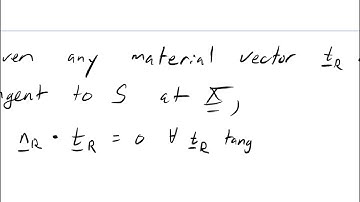 ven any material vector t_R
gent to S at X,
n_R · t_R = 0 ∀ t_R tang